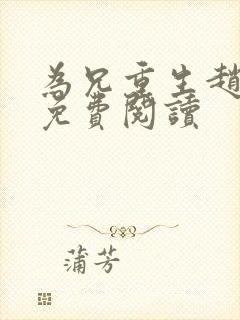 為兄重生趙
免費閱讀
蒲芳